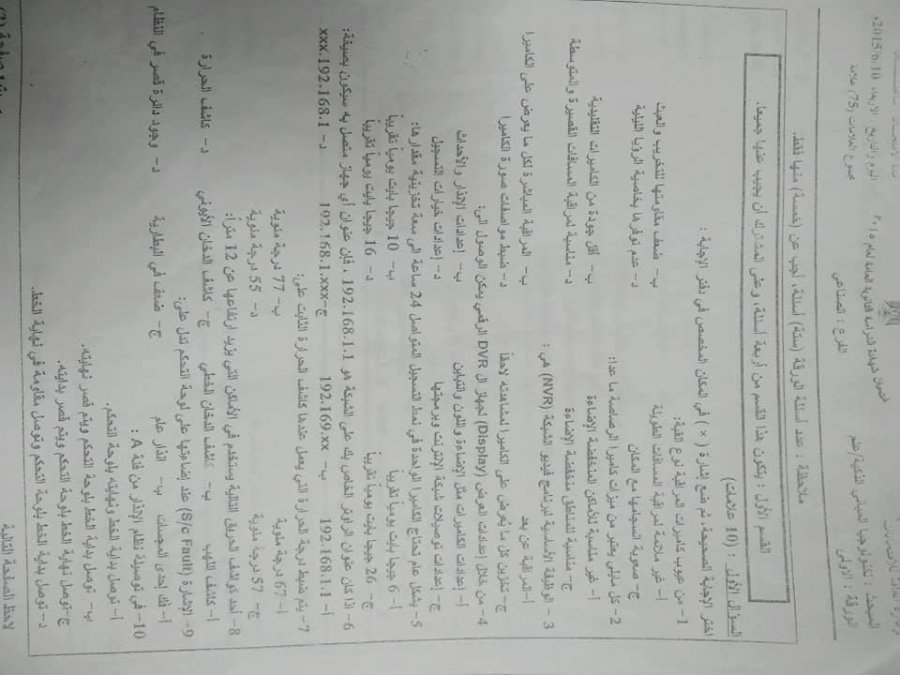 امتحان شهادة الدراسة الثانوية العامة لعام ٢٠١٥
الفرع : الصناعي
المبحث : تكنولوجيا المباني الذكية/علم
الورقة : الأولى
اليوم والتاريخ : الاربعاء 2015/6/10م
مجموع العلامات (75) علامة
ملاحظة : عدد أسئلة الورقة (ستة) أسئلة، أجب عن (خمسة) منها فقط.
القسم الأول : يتكون هذا القسم من أربعة أسئلة، وعلى المشترك أن يجيب عنها جميعا.
السؤال الأول : (10 علامات)
اختر الإجابة الصحيحة، ثم ضع إشارة ( × ) في المكان المخصص في دفتر الإجابة :
1- من عيوب كاميرات المراقبة نوع القبة:
أ- غير ملائمة لمراقبة المسافات الطويلة ب- ضعف مقاومتها للتخريب والعبث
ج- صعوبة انسجامها مع المكان د- عدم توفرها بخاصية الرؤيا الليلية
2- كل مايلي يعتبر من ميزات كاميرا الرصاصة ما عدا:
أ- غير مناسبة للأماكن المنخفضة الإضاءة ب- أقل جودة من الكاميرات التقليدية
ج- مناسبة للمناطق منخفضة الإضاءة د- مناسبة لمراقبة المسافات القصيرة والمتوسطة
3- الوظيفة الأساسية لبرنامج فيديو الشبكة (NVR) هي :
أ- المراقبة عن بعد ب- المراقبة المباشرة لكل ما يعرض على الكاميرا
ج- تخزين كل ما يُعرض على الكاميرا لمشاهدته لاحقاً د- ضبط مواصفات صورة الكاميرا
4- من خلال إعدادات العرض (Display) لجهاز ال DVR الرقمي يمكن الوصول الى:
أ- إعدادات الكاميرات مثل الإضاءة واللون والتباين ب- إعدادات الإنذار والأحداث
ج- إعدادات توصيلات شبكة الإنترنت وبرمجتها د- إعدادات خيارات التسجيل
5- بشكل عام تحتاج الكاميرا الواحدة في نمط التسجيل المتواصل 24 ساعة الى سعة تخزينية مقدارها:
أ- 6 جيجا بايت يومياً تقريباً ب- 10 جيجا بايت يومياً تقريباً
ج- 26 جيجا بايت يومياً تقريباً د- 16 جيجا بايت يومياً تقريباً
6- إذا كان عنوان الراوتر الخاص بك على الشبكة هو 192.168.1.1 ، فإن عنوان أي جهاز متصل به سيكون بصيغة:
أ- 192.168.11 ب- 192.169.xx ج- 192.168.1.xxx د- xxx.192.168.1
7- يتم ضبط درجة الحرارة التي يعمل عندها كاشف الحرارة الثابت على:
أ- 67 درجة مئوية ب- 77 درجة مئوية
ج- 57 درجة مئوية د- 55 درجة مئوية
8- أحد كواشف الحريق التالية يستخدم في الأماكن التي يزيد ارتفاعها عن 12 متراً:
أ- كاشف اللهب ب- كاشف الدخان الخطي ج- كاشف الدخان الأيوني د- كاشف الحرارة .
9- الإشارة (S/c Fault) عند إضاءتها على لوحة التحكم تدل على:
أ- فك احدى المجسات ب- انذار عام ج- ضعف في البطارية د- وجود دائرة قصر في النظام
10- في توصيلة نظام الإنذار من فئة A :
أ- توصل بداية الخط ونهايته بلوحة التحكم.
ب- توصل بداية الخط بلوحة التحكم ويتم قصر نهايته.
ج- توصل نهاية الخط بلوحة التحكم ويتم قصر بدايته.
د- توصل بداية الخط بلوحة التحكم وتوصل مقاومة في نهاية الخط.
لاحظ الصفحة التالية